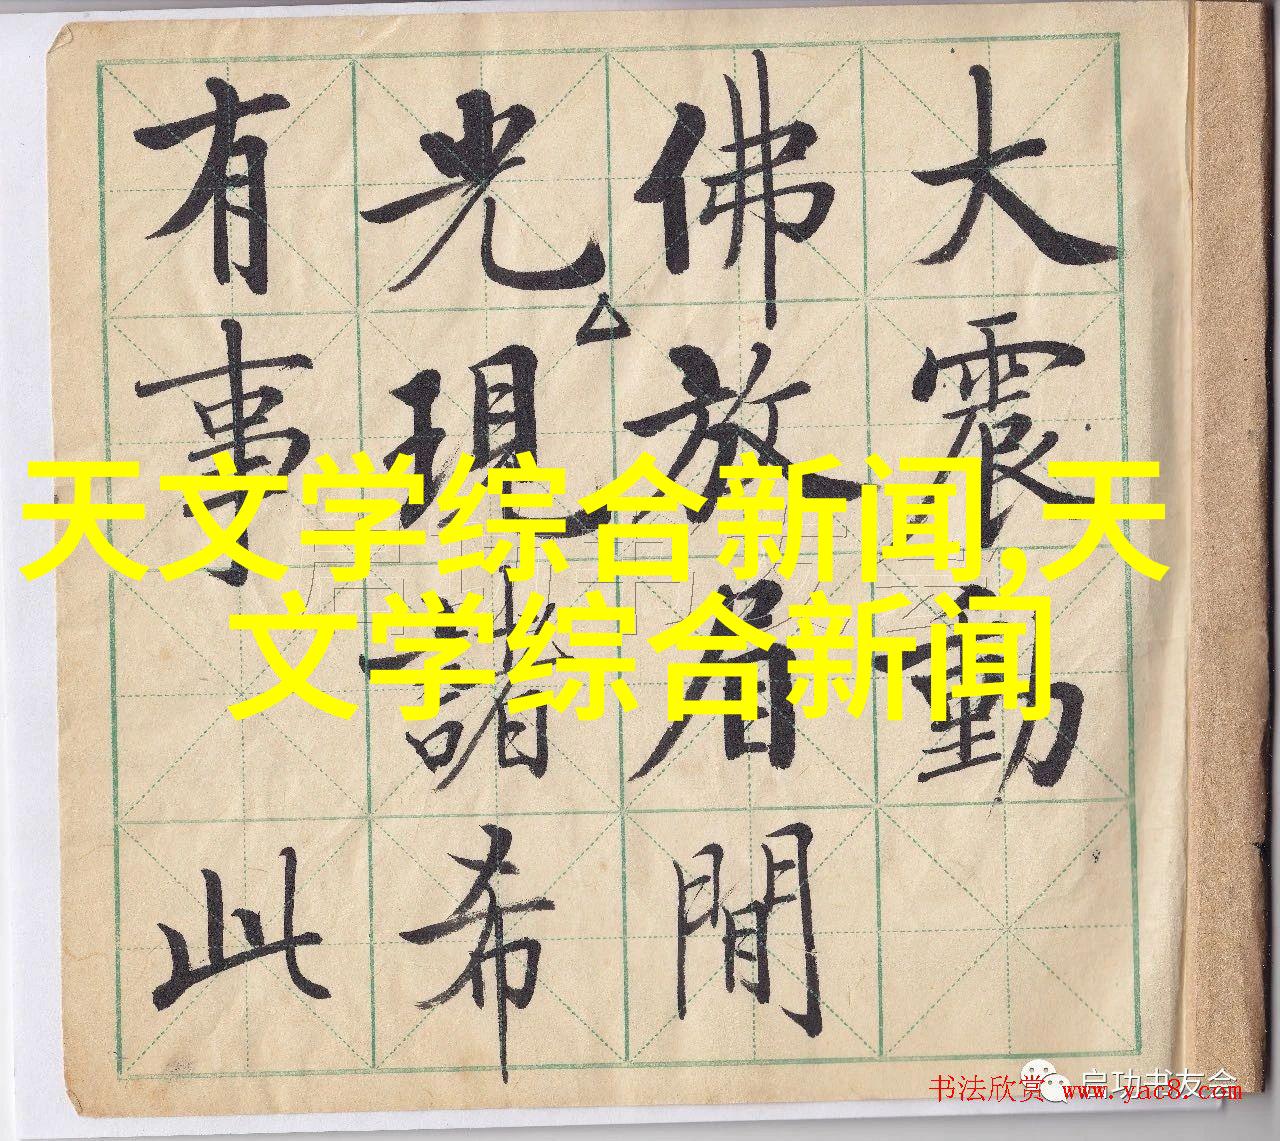 大震動
佛放眉間
光現諸希
有事此
天文学综合新闻,天
文学综合新闻
启功书友会
书法欣赏 www.yac8.com